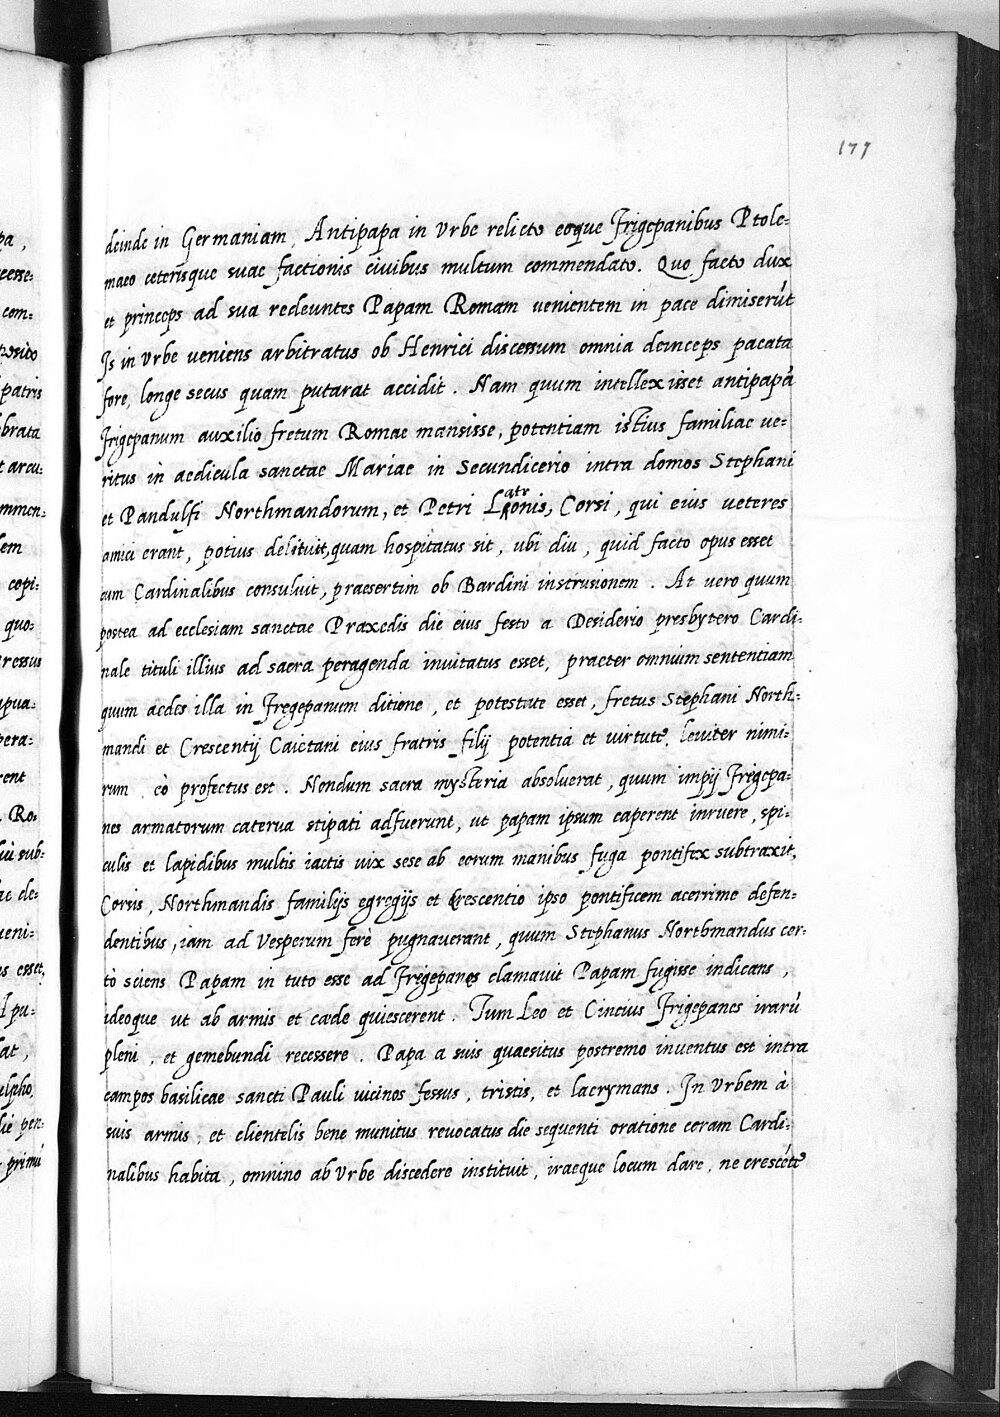 177
deinde in Germaniam, Antipapa in Vrbe relicto eoque Frigepanibus Ptole-
maeo ceterisque suae factionis ciuibus multum commendato. Quo facto dux
et princeps ad sua redeuntes Papam Romam uenientem in pace dimiserūt
Is in Vrbe ueniens arbitratus ob Henrici discessum omnia deinceps pacata
fore, longe secus quam putarat accidit. Nam quum intellexisset antipapā
Frigepanum auxilio fretum Romae mansisse, potentiam istius familiae ue-
ritus in aedicula sanctae Mariae in Secundicerio intra domos Stephani
et Pandulfi Northmandorum, et Petri Latronis, Corsi, qui eius ueteres
amici erant, potius delituit, quam hospitatus sit, ubi diu, quid facto opus esset
cum Cardinalibus consuluit, praesertim ob Bardini instrusionem. At uero quum
postea ad ecclesiam sanctae Praxedis die eius festo a Desiderio presbytero Cardi-
nale tituli illius ad sacra peragenda inuitatus esset, praeter omnium sententiam
quum aedes illa in Fregepanum ditione, et potestate esset, fretus Stephani North-
mandi et Crescentij Caietani eius fratris filij potentia et uirtute, leuiter nimi-
rum eò profectus est. Nondum sacra mysteria absoluerat, quum impij Frigepa-
nes armatorum caterua stipati adfuerunt, ut papam ipsum caperent inruere, spi-
culis et lapidibus multis iactis uix sese ab eorum manibus fuga pontifex subtraxit,
Corsis, Northmandis familijs egregijs et Crescentio ipso pontificem acerrime defen-
dentibus, iam ad Vesperum ferè pugnauerant, quum Stephanus Northmandus cer-
tò sciens Papam in tuto esse ad Frigepanes clamauit Papam fugisse indicans,
ideoque ut ab armis et caede quiescerent. Tum Leo et Cincius Frigepanes irarū
pleni, et gemebundi recessere. Papa a suis quaesitus postremo inuentus est intra
campos basilicae sancti Pauli uicinos fessus, tristis, et lacrymans. In Vrbem à
suis armis, et clientelis bene munitus reuocatus die sequenti oratione coram Cardi-
nalibus habita, omnino ab Vrbe discedere instituit, iraeque locum dare, ne crescēte